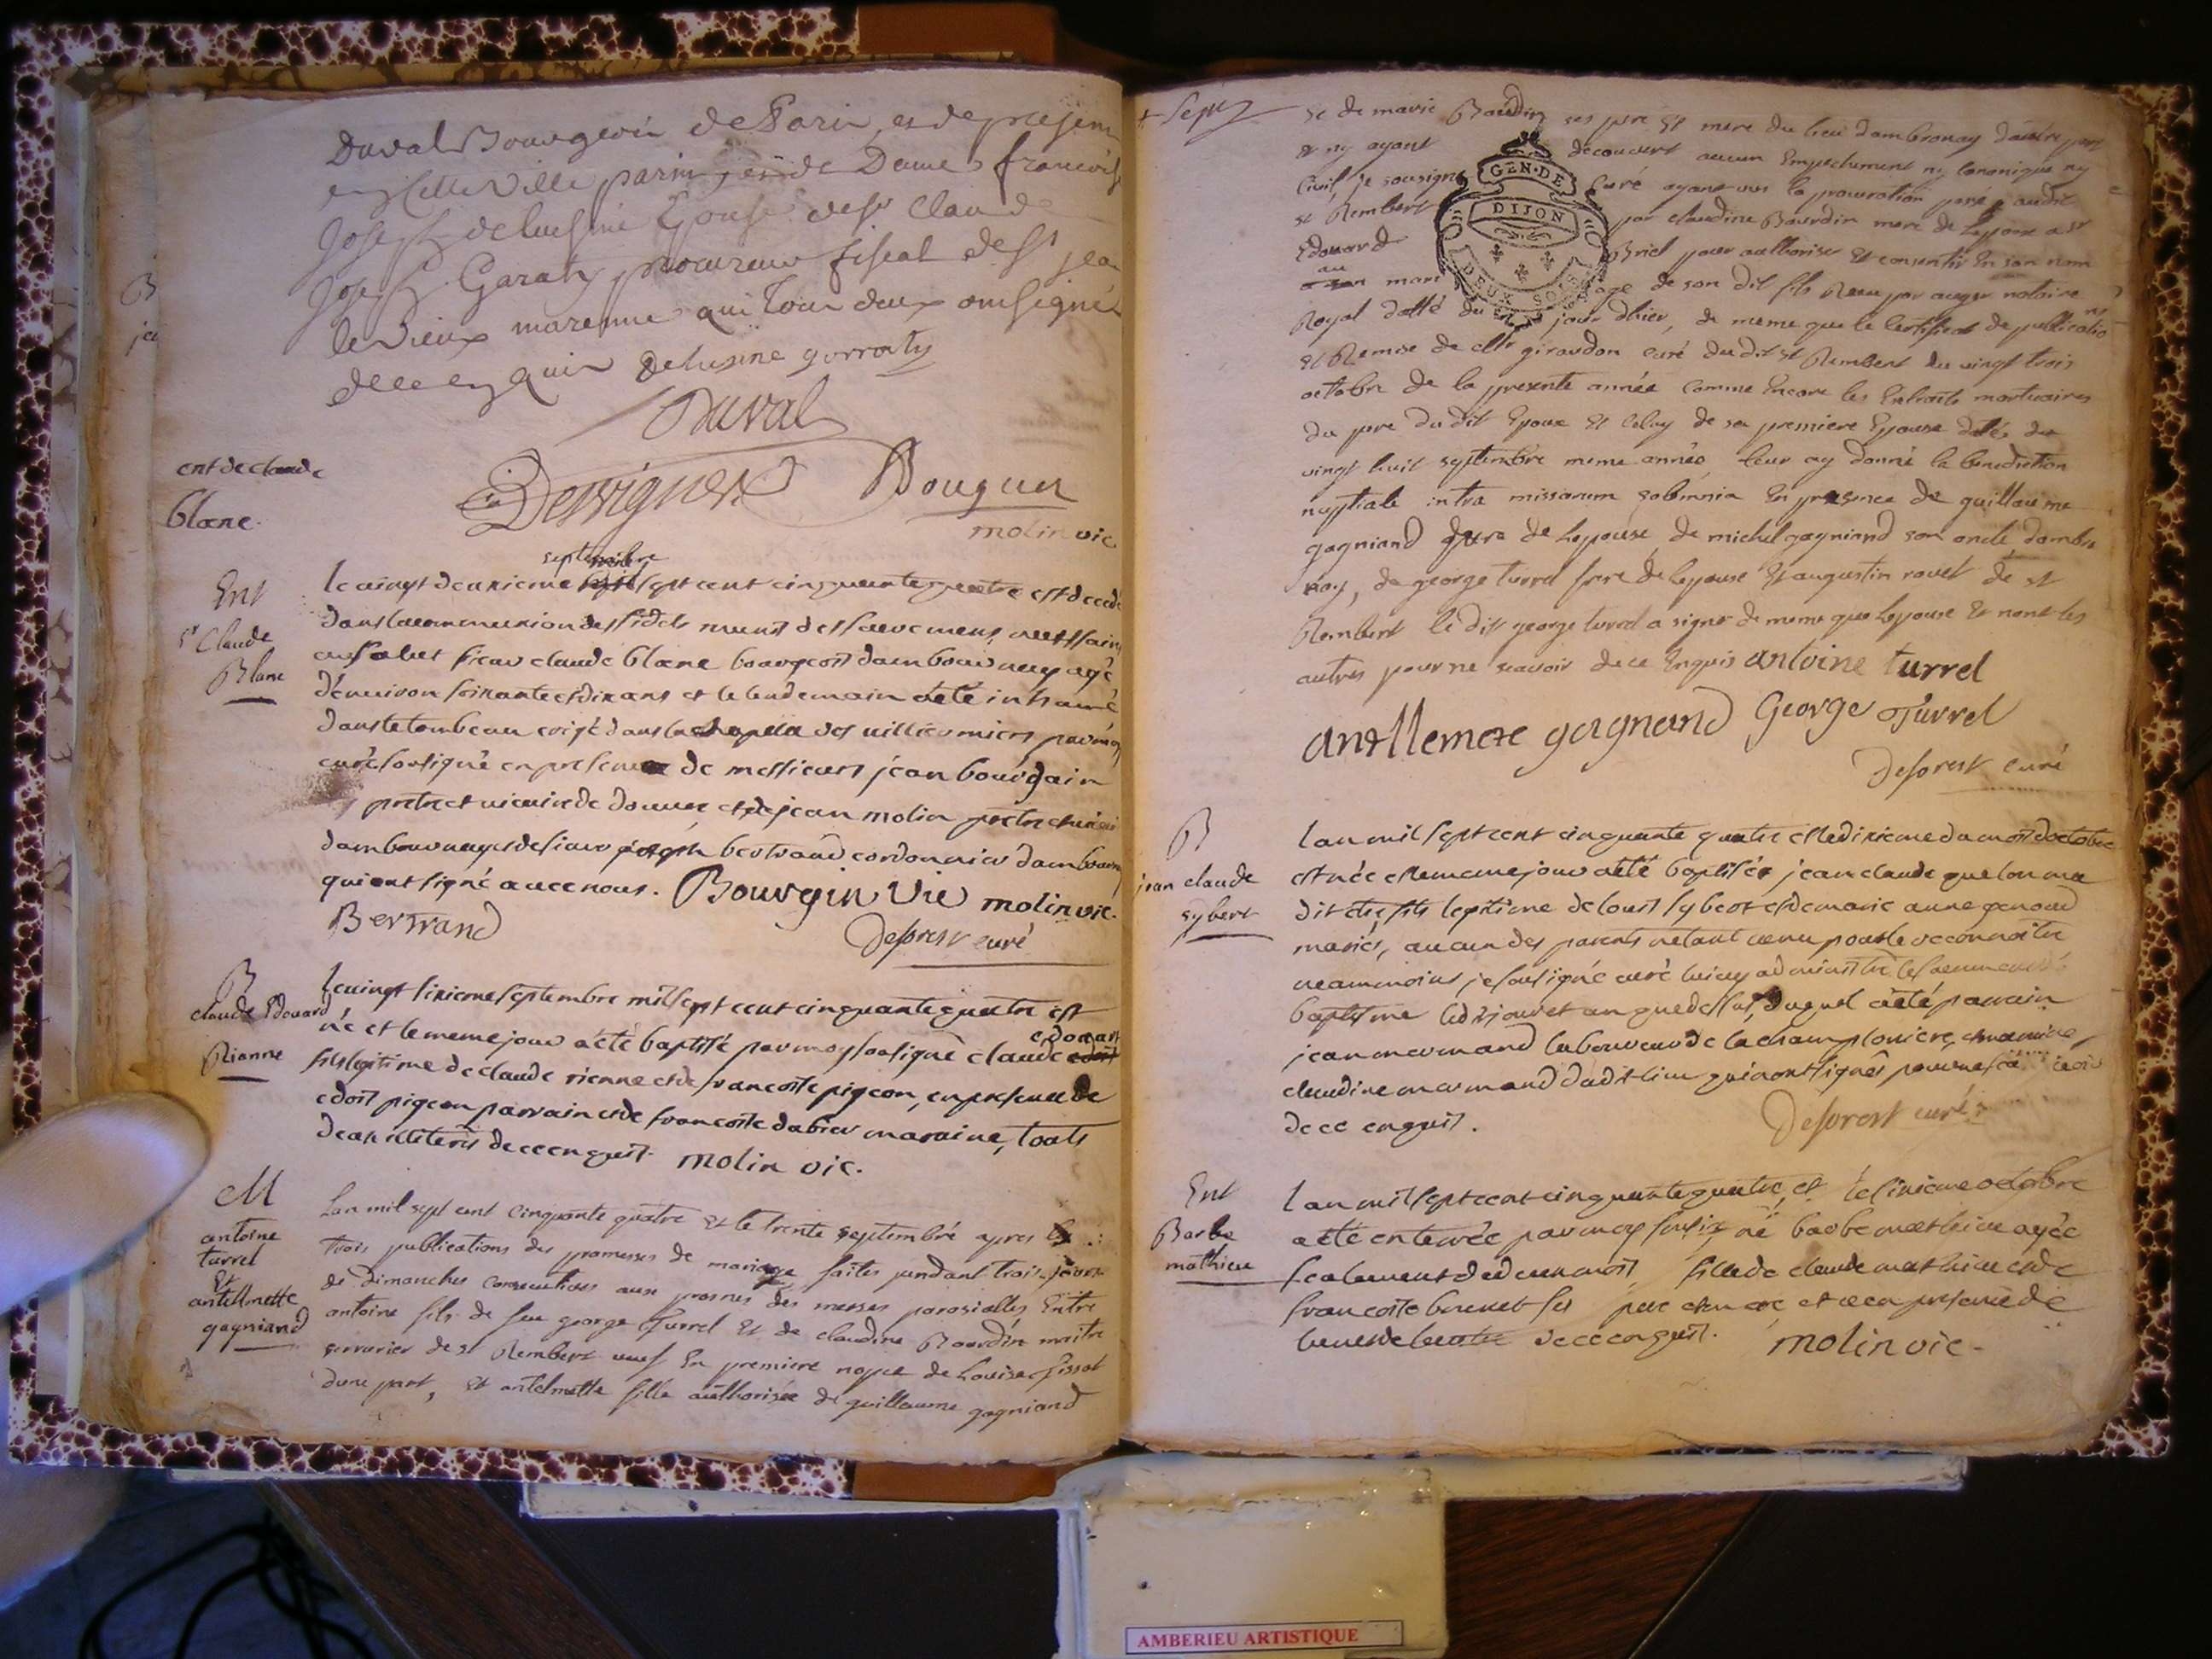 Duval Bourgeois de Paris, et de present
en cette ville parin, et de Dame francoise
Joseph delusine Epouse de sr Claude
Joseph Garaty procureur fiscal de st jea
le vieux marenne qui tous deux ont signé
de ce enquis Delusine garraty
Duval
Dervigner Bouguer
molin vic
ent de claude
blanc.
Ent
sr Claude
Blanc
septembre
le vingt deuxieme sept cent cinquante quatre est decedé
dans la communion des fideles muni des sacremens
sieur claude blanc bourgeois dambournay agé
denviron soixante et dix ans et le lendemain a été inhumé
dans le tombeau erigé dans la chapelle des par moy
curé soussigné en presence de messieurs jean bourgain
pretre et vicaire de et de jean molin pretre et vicaire
dambournay et de sieur joseph bertrand cordonnier dambournay
qui ont signé avec nous. Bourgin Vic molin vic.
Bertrand
Deforest curé
B
claude Edouard
Rianne
le vingt sixieme septembre mil sept cent cinquante quatre est
né et le meme jour a été baptisé par moy soussigné claude edouard
fils legitime de claude rienne et de francoise pigeon, en presence de
edoit pigeon parrain et de francoise dabier maraine, touts
deux illiterés de ce enquis. molin vic.
M
antoine
turrel
Et
antellmette
gagniand
Lan mil sept cent cinquante quatre et le trente septembre apres les
trois publications des promesses de mariage faites pendant trois jours
de dimanches consecutives aux prosnes des messes parosialles Entre
antoine fils de feu george Turrel Et de claudine Bourdin maitre
serrurier de st Rembert veuf En premiere nopce de Louise fissot
dune part, Et antelmette fille authorisée de guillaume gagniand
Et de marie Baudin ses pere Et mere du lieu dambronay dautre part
et ny ayant découvert aucun Empechement ny canonique ny
Civil, je sousigné Curé ayant vus la procuration passé audit
st Rembert par claudine Bourdin mere de lepoux a sr
Edouard Briel pour authoriser Et consentir En son nom
au mariage de son dit fils Receu par auger notaire
Royal datté du jour dhier, de meme que le Certificat de publication
Et Remise de Mr giraudon curé du dit st Rembert du vingt trois
octobre de la presente année comme Encore les Extraits mortuaires
du pere du dit Epoux Et Celuy de sa premiere Epouse datés du
vingt huit septembre meme année, leur ay donné la benediction
nuptiale intra missarum solemnia En presence de guillaume
gagniand pere de lepouse, de michel gagniand son oncle dambro
nay, de george turrel frere de lepoux Et augustin ravet de st
Rembert le dit george turrel a signé de meme que lepouse Et non les
autres pour ne scavoir de ce Enquis antoine turrel
antllemete gagnand George Turrel
Deforest curé
GEN. DE
DIJON
DEUX SOLS
B
jean claude
sybert
lan mil sept cent cinquante quatre et le dixieme du mois doctobre
est née et le meme jour a été baptisée jean claude que lon ma
dit etre fils legitime de louis sybert et de marie anne genoud
mariés, aucun des parents netant venu pour le reconnoitre
neammoins je soussigné curé luy ay administré le sacrement de
baptesme led jour et an que dessus, duquel a été parrain
jean mermand laboureur de la champlonière, et marraine
claudine mermand dudit lieu qui nont signés pour ne scavoir
de ce enquis.
Deforest curé
Ent
Barbe
mathieu
lan mil sept cent cinquante quatre, et le sixieme octobre
a été enterrée par moy soussigné barbe mathieu agée
seulement de deux mois fille de claude mathieu et de
francoise ses pere et mere, et ce en presence de
de ce enquis. molin vic.
AMBERIEU ARTISTIQUE